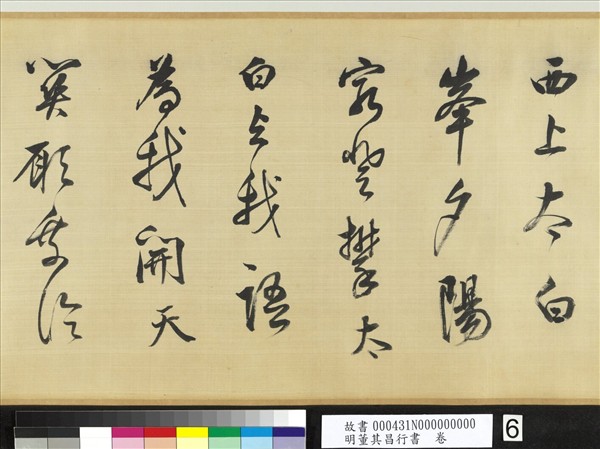 西上太白
峯夕陽
窮登攀太
白与我語
為我開天
關願乘泠
故書 000431N000000000
明董其昌行書 卷
6